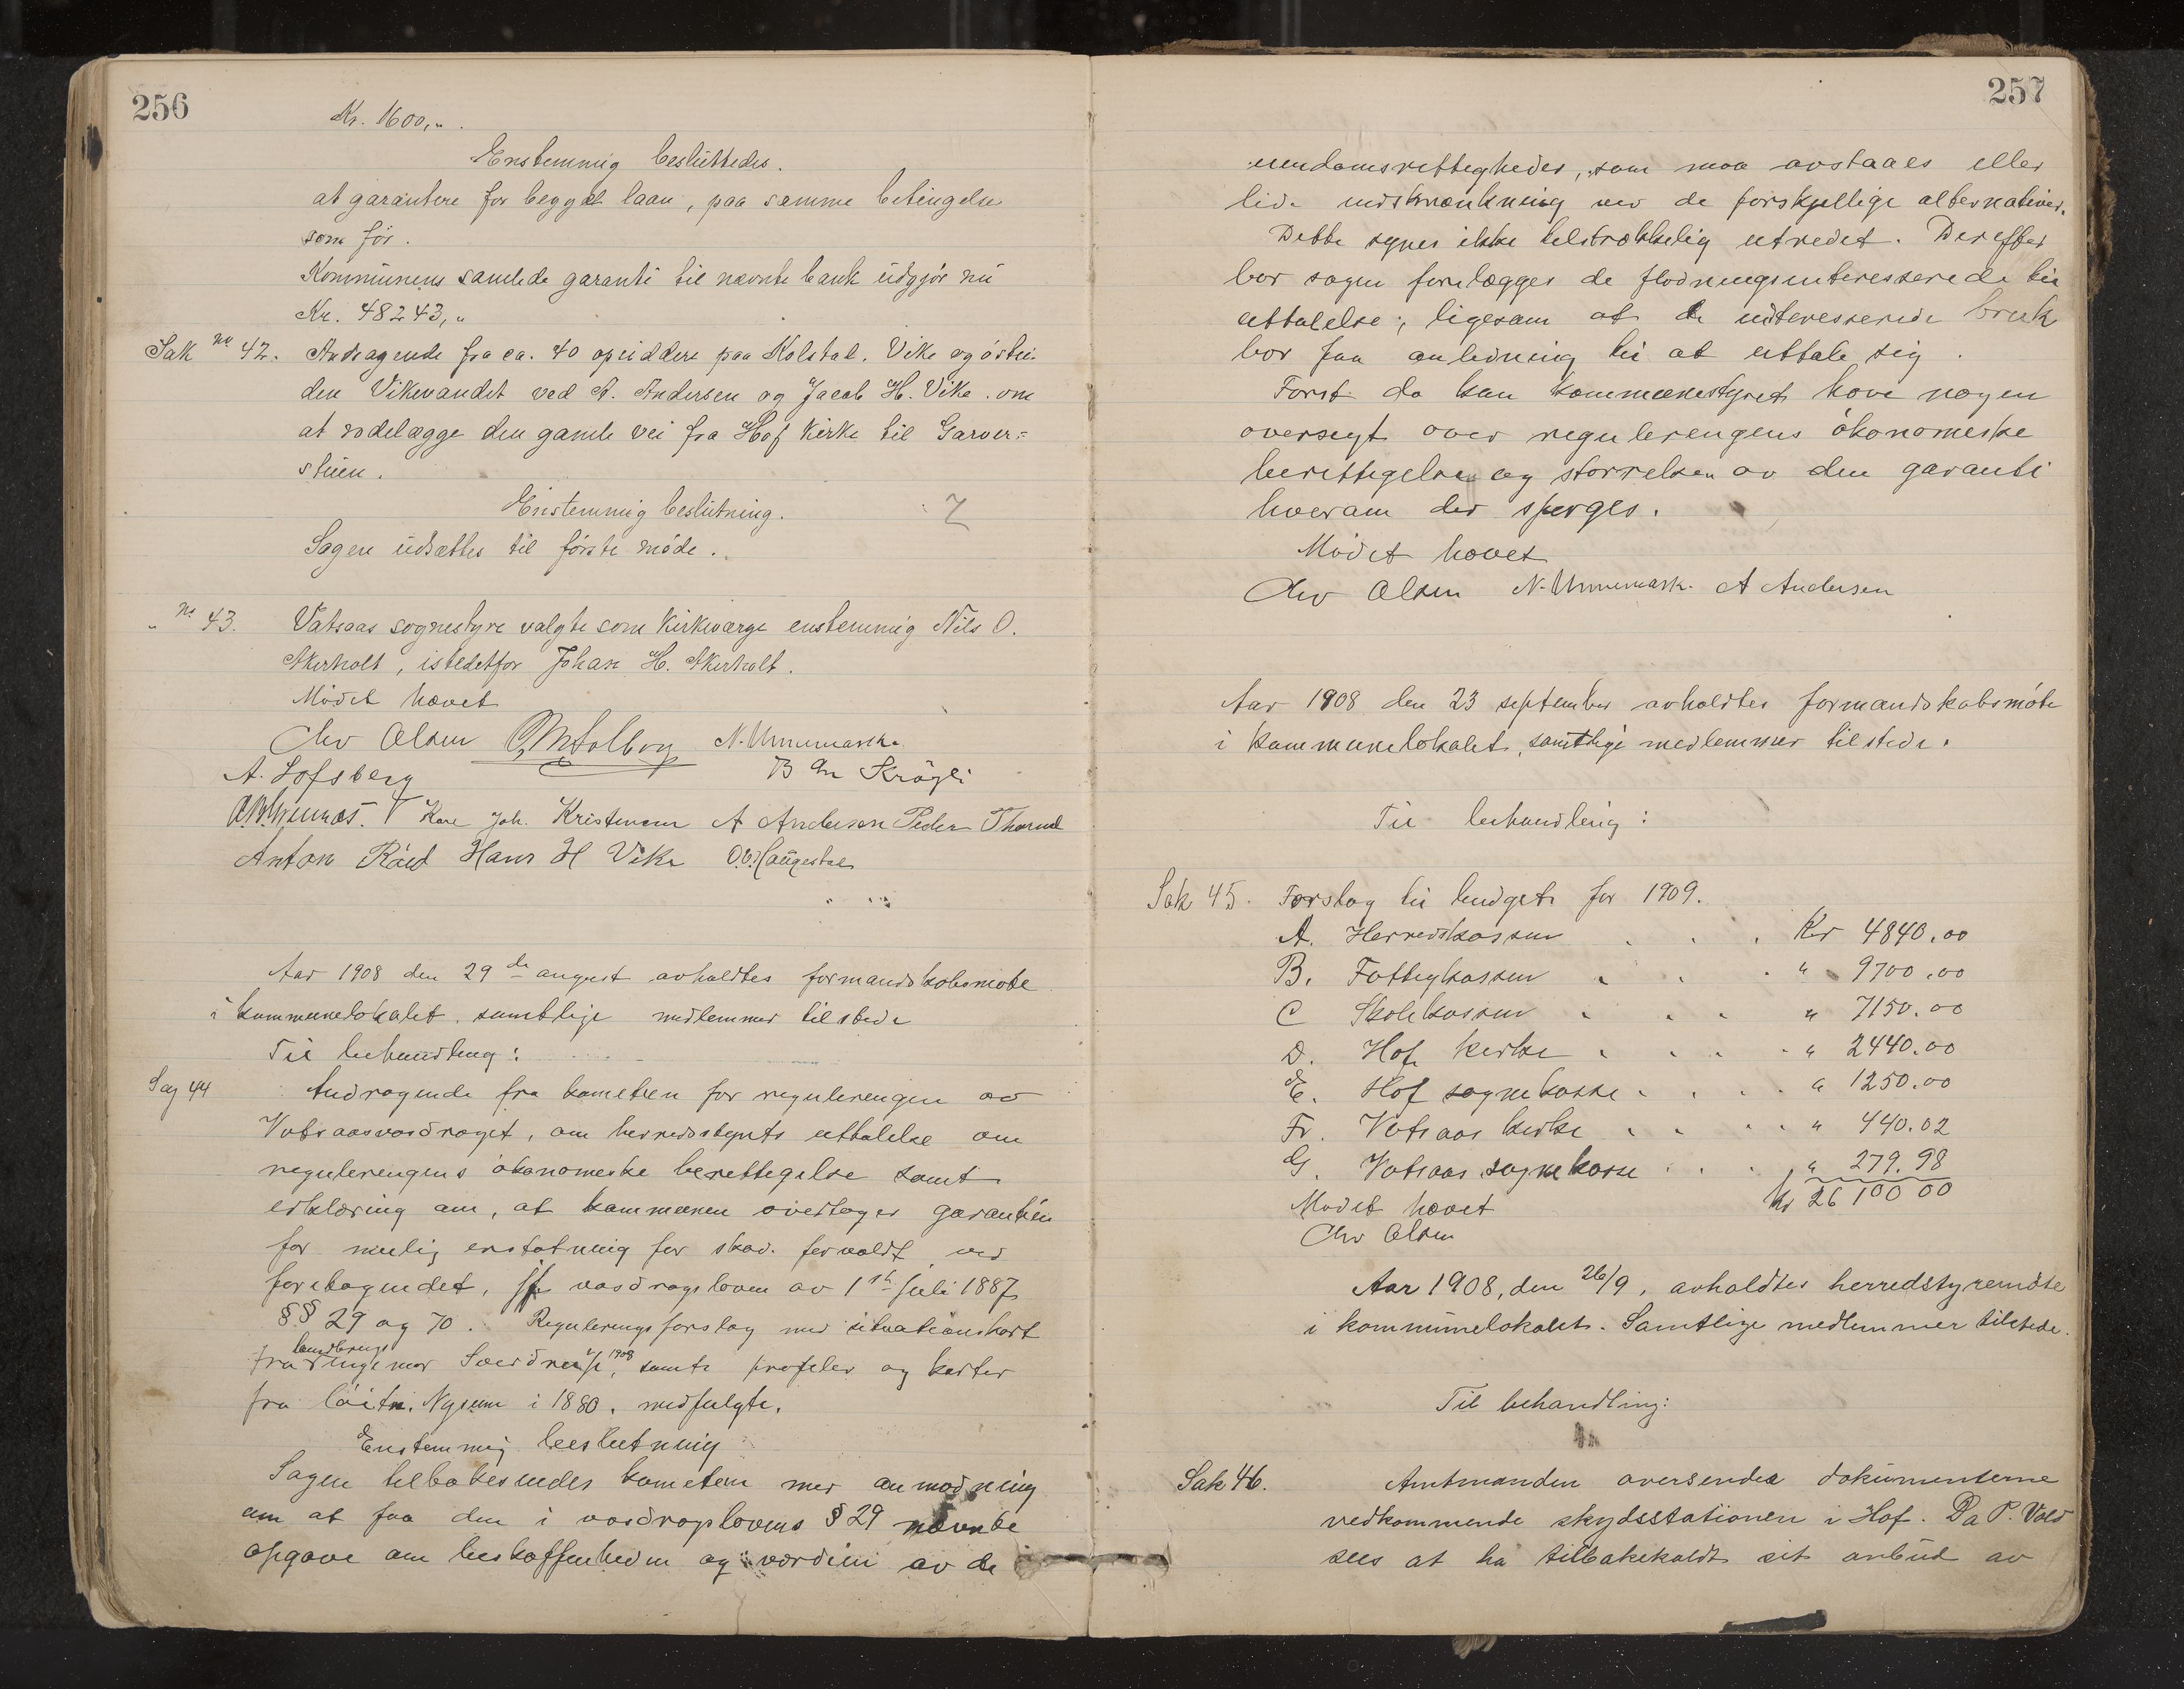 256
Kr. 1600,"
Enstemmig besluttedes.
at garantere for bygget laan, paa samme betingelse
som før.
Kommunens samlede garanti til nævnte bank udgjør nu
Kr. 48243,"
Sak no 42. Andragende fra ca. 40 opsiddere paa Kolstad. Vike og østsi-
den Vikevandet ved A. Andersen og Jacob H. Vike. om
at rodelægge den gamle vei fra Hof kirke til Garver=
stuen.
Enstemmig beslutning.
Sagen udsættes til første møde.
" no 43. Vatsaas sognestyre valgte som kirkeværge enstemmig Nils O.
Akerholt, istedetfor Johan H. Akerholt.
Mødet hævet
Chr Olsen N. Unnemark.
A. Sofsberg
Kare Joh. Kristensen A Andersen Peder
Anton Røed Hans H Vike O. Haugestad
Aar 1908 den 29de august avholdtes formandskabsmøte
i kommunelokalet. samtlige medlemmer tilstede
Til behandling:
Sag 44 Andragende fra kometeen for reguleringen av
Vatsaasvasdraget, om herredsstyrets uttalelse om
reguleringens økonomiske berettigelse samt
erklæring om, at kommunen overtager garantien
for mulig erstatning for skade forvoldt ved
foretagendet, jfr vasdragsloven av 1ste juli 1887
§§ 29 og 70. Reguleringsforslag med situationskart
landbrugs
fra ingeniør 1908, samt profiler og karter
fra løitn. Nysum i 1880. medfulgte.
Enstemmig beslutning
Sagen tilbakesendes kometeen med anmodning
om at faa den i vasdragslovens § 29 nævnte
opgave om beskaffenheden og værdien av de
257
eiendomsrettigheder, som maa avstaaes eller
lide indskrænkning ved de forskjellige alternativer.
Dette synes ikke tilstrækkelig utredet. Derefter
bør sagen forelægges de flødningsinteresserede til
uttalelse; ligesom at de interesserede bruk
bør faa anledning til at uttale sig.
Først da kan kommunestyret have nogen
oversigt over reguleringens økonomiske
berettigelse og størrelsen av den garanti
hvorom der spørges.
Mødet hævet
Chr Olsen N. Unnemark. A Andersen
Aar 1908 den 23 september avholdtes formandskabsmøte
i kommunelokalet, samtlige medlemmer tilstede.
Til behandling:
Sak 45. Forslag til budget for 1909.
A. Herredskassen . . . Kr 4840.00
B. Fattigkassen . . . " 9700.00
C Skolekassen . . . " 7150.00
D. Hof kirke . . . . " 2440.00
E. Hof sognekasse . . . . " 1250.00
Fr. Vatsaas kirke . . . . " 440.02
G. Vatsaas sognekasse . . . " 279.98
Mødet hævet Kr 26100 00
Chr Olsen
Aar 1908, den 26/9, avholdtes herredstyremøte
i kommunelokalet. Samtlige medlemmer tilstede.
Til behandling:
Sak 46. Amtmanden oversender dokumenterne
vedkommende skydsstationen i Hof. Da P. Vold
sees at ha tilbakekaldt sit anbud av